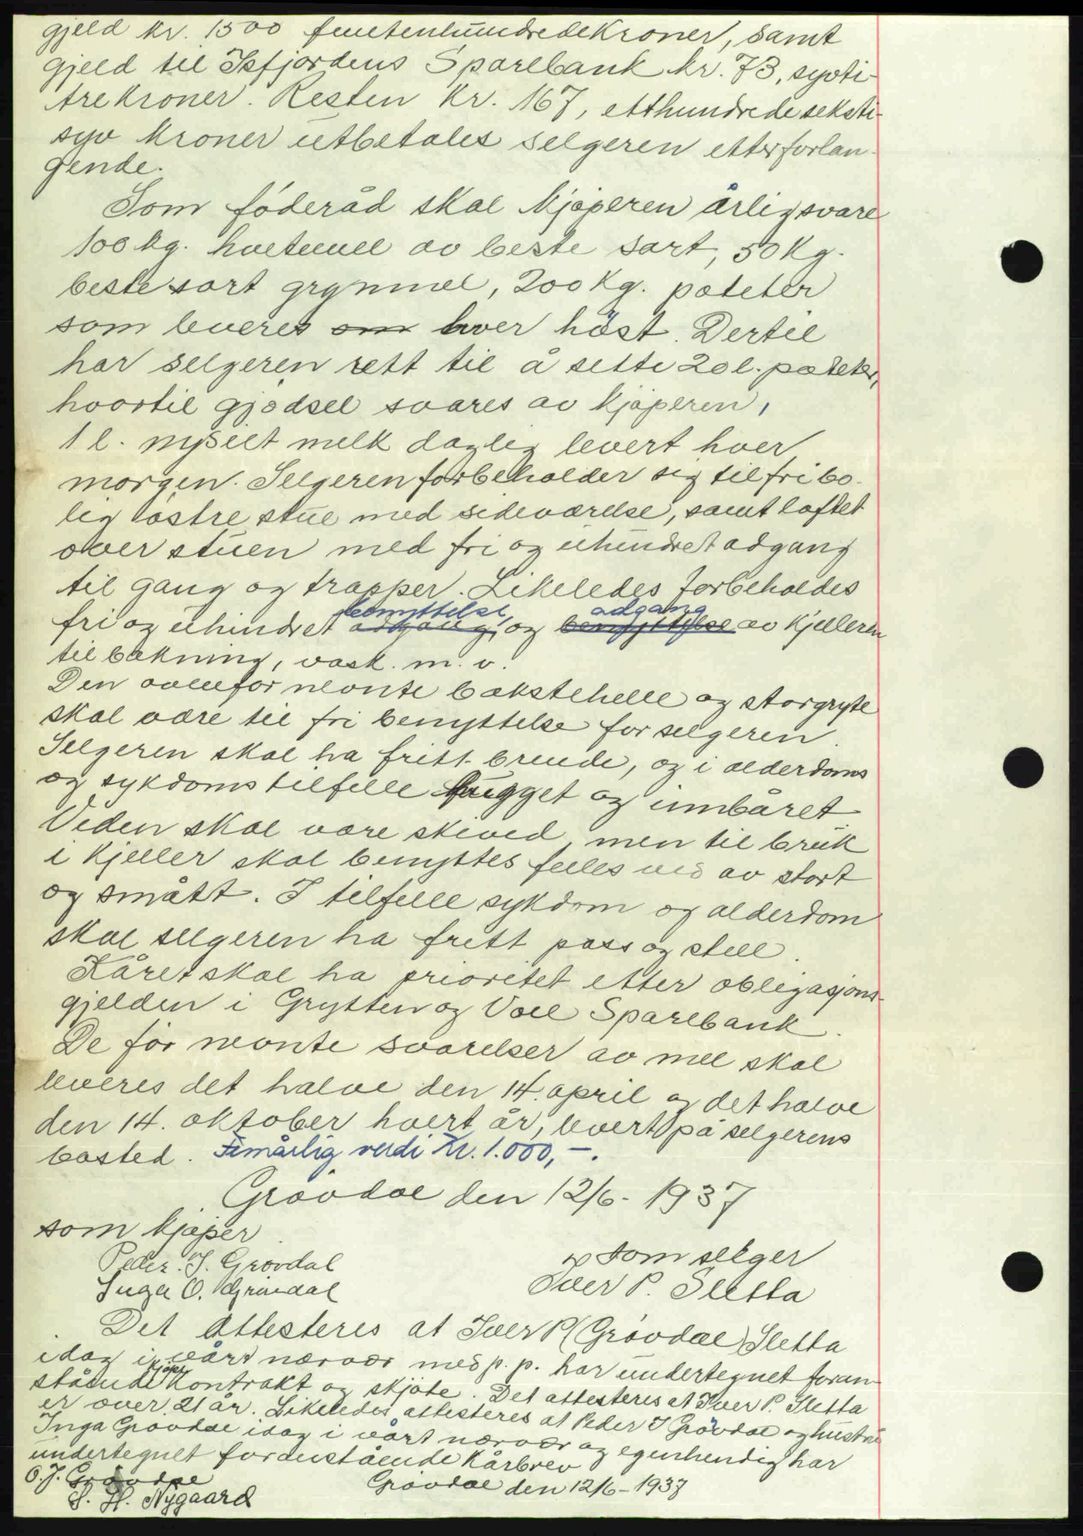 gjeld kr. 1500 femtenhundredekroner, samt
gjeld til Isfjordens Sparebank kr. 73, sytti-
trekroner. Resten kr. 167, etthundredeseksti-
syv kroner utbetales selgeren etter forlan-
gende.
Som føderåd skal kjøperen årlig svare
100 kg. hvetemel av beste sort, 50 kg.
beste sort grynmel, 200 kg. poteter
som leveres om hver høst. Dertil
har selgeren rett til å sette 20 l. poteter,
hvortil gjødsel svares av kjøperen,
1 l. nysilt melk daglig levert hver
morgen. Selgeren forbeholder sig til fri bo-
lig østre stue med sideværelse, samt loftet
over stuen med fri og uhindret adgang
til gang og trapper. Likeledes forbeholdes
benyttelse, adgang
fri og uhindret adgang, og benyttelse av kjelleren
til bakning, vask m. v.
Den ovenfor nevnte bakstehelle og storgryte
skal være til fri benyttelse for selgeren.
Selgeren skal ha fritt brende, og i alderdoms
og sykdomstilfelle hugget og innbåret.
Veden skal være skived, men til bruk
i kjeller skal benyttes felles ved av stort
og smått. I tilfelle sykdom og alderdom
skal selgeren ha fritt pass og stell.
Kåret skal ha prioritet etter obligasjons-
gjelden i Grytten og Voll Sparebank.
De før nevnte svarelser av mel skal
leveres det halve den 14. april og det halve
den 14. oktober hvert år, levert på selgerens
bosted. Femårlig verdi kr. 1.000,-.
Grøvdal den 12/6- 1937
som kjøper
som selger
Peder. J. Grøvdal
Iver P. Sletta
Inga O. Grøvdal
Det attesteres at Iver P (Grøvdal) Sletta
idag i vårt nærvær med p. p. har undertegnet foran-
kjøpe
stående kontrakt og skjøte. Det attesteres at Iver P. Sletta
er over 21 år. Likeledes attesteres at Peder J Grøvdal og hustru
Inga Grøvdal idag i vårt nærvær og egenhendig har
undertegnet foranstående kårbrev
O. J. Grøvdal
Grøvdal den 12/6- 1937
H. Nygaard